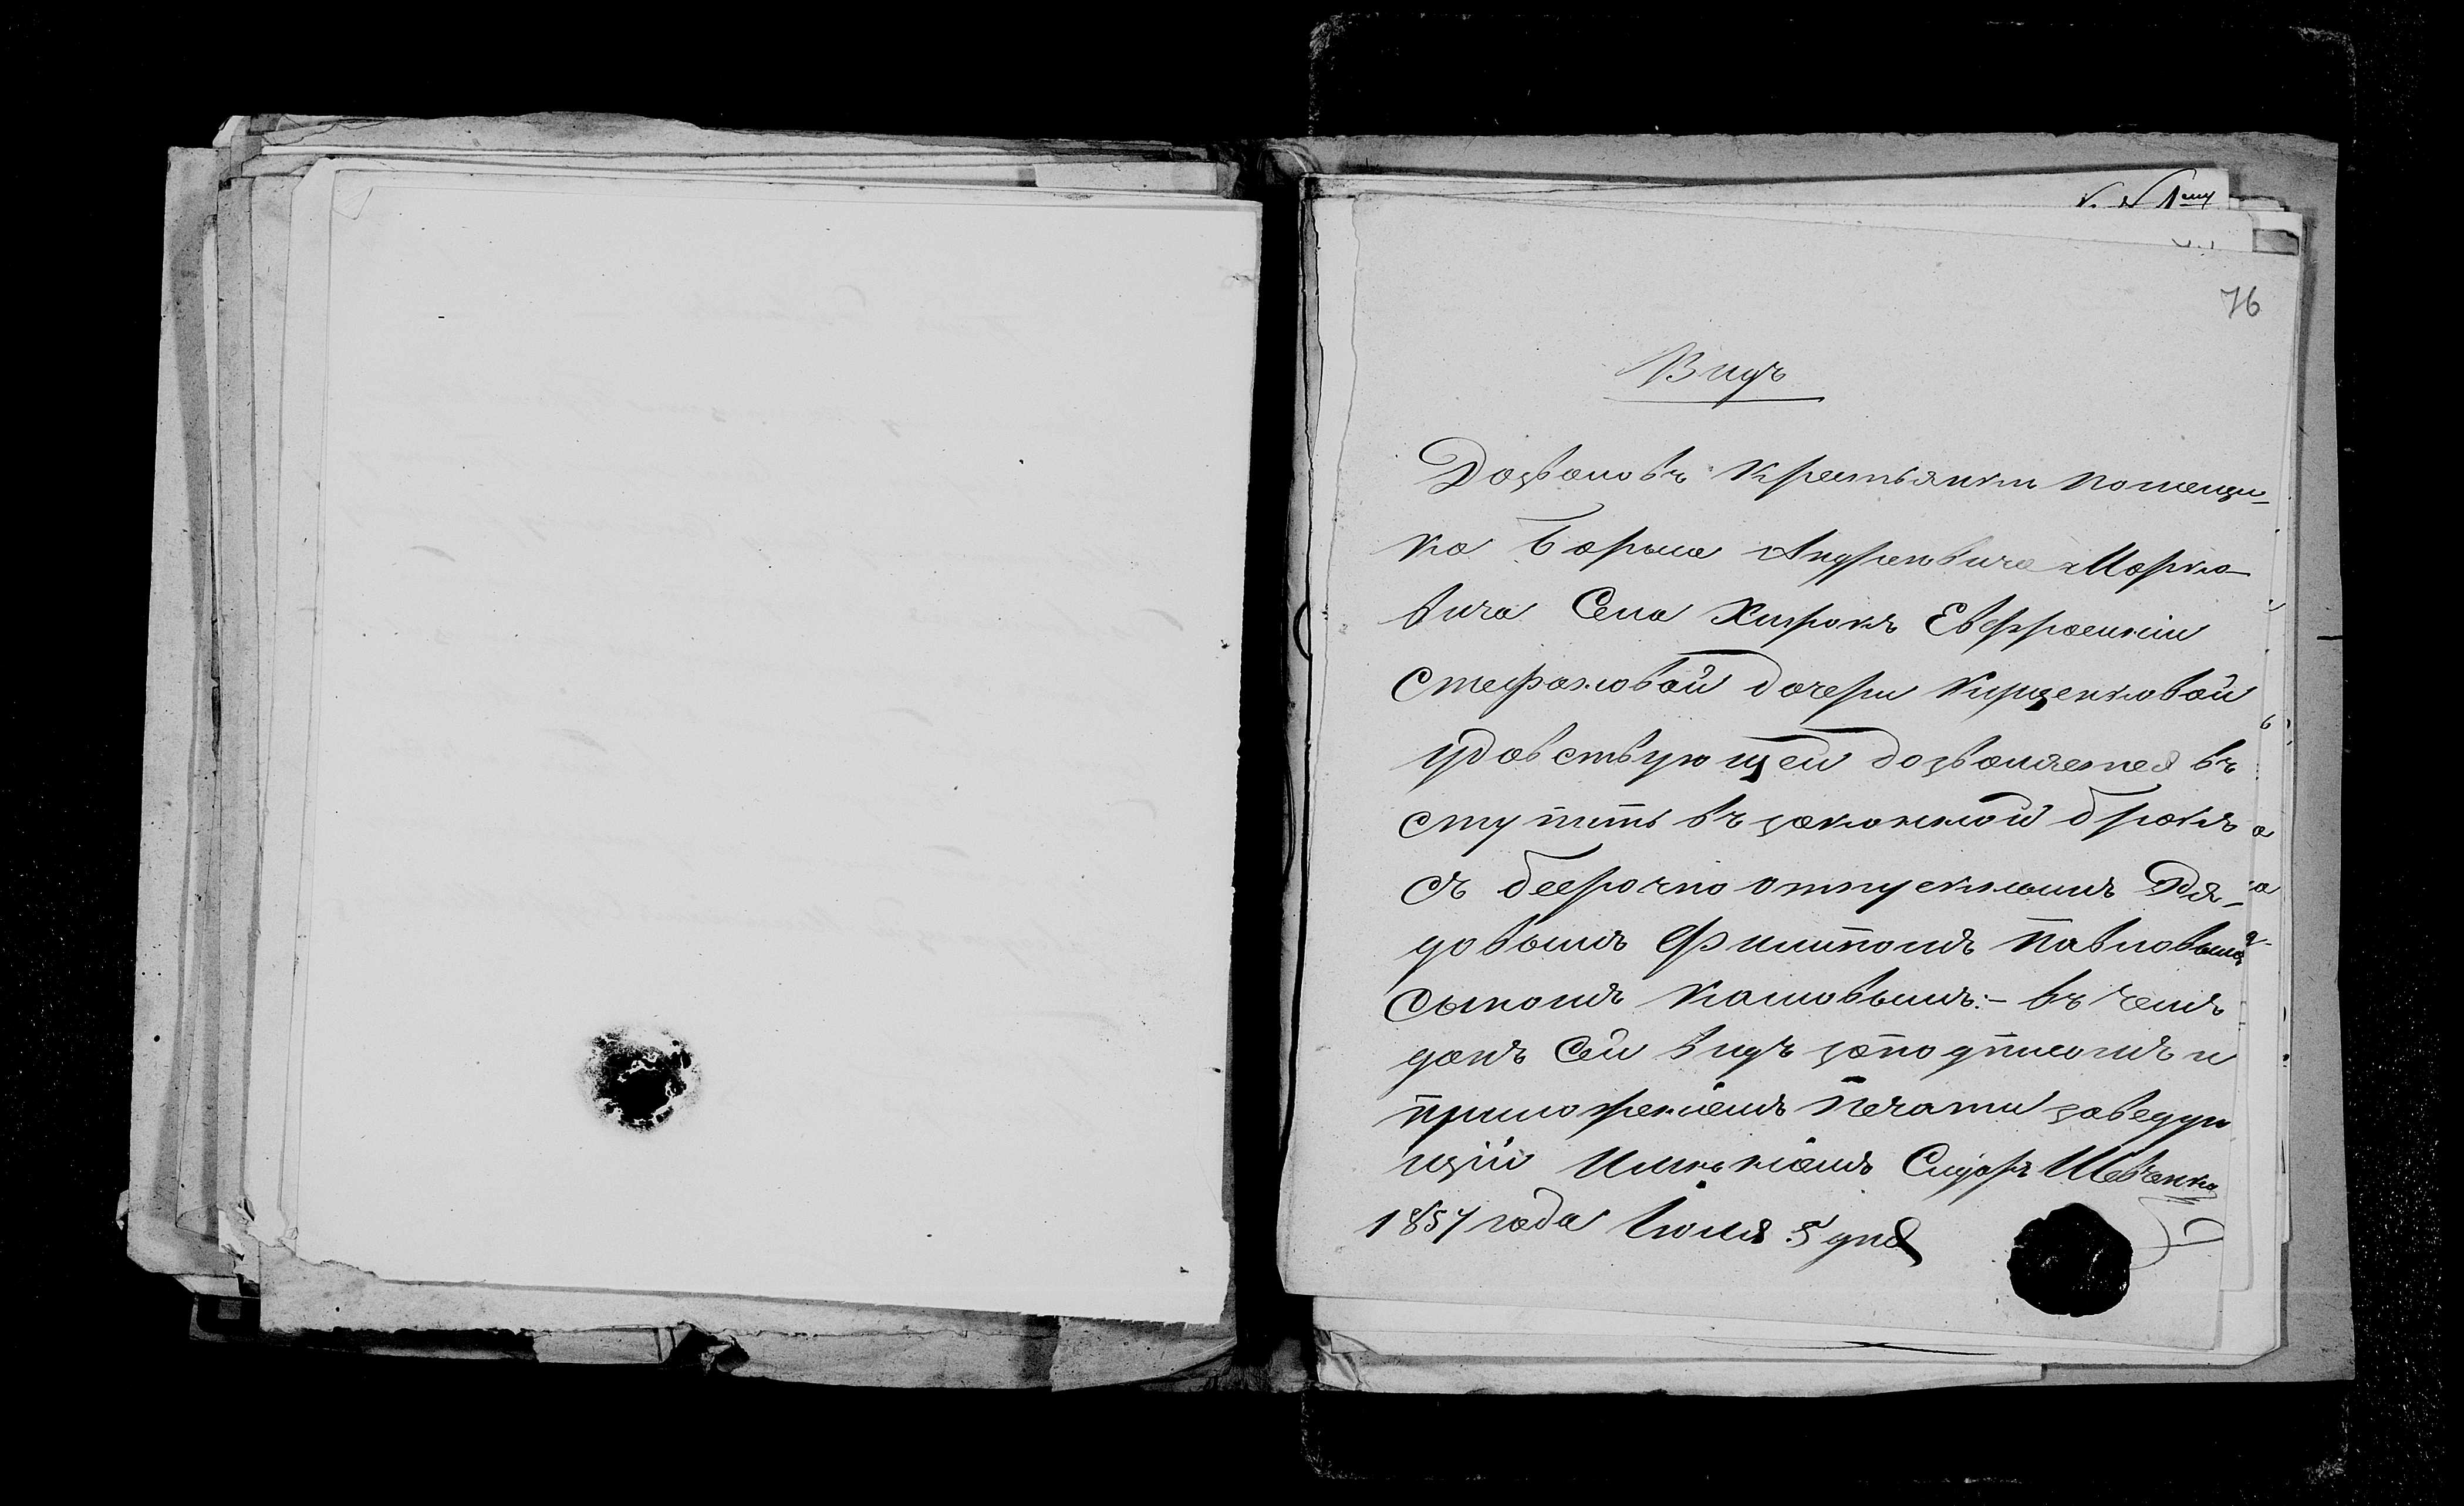 76
Видъ
Дозволовъ крестьянки помещи-
ка Бориса Андреевича Марко-
вича Села Хирокъ Евфросинии
Стефановой дочери Кищенковой
удовствующей дозволяется въ
ступить въ законной бракъ
съ бесрочно отпускнымъ Ря-
довымъ Филипомъ Павловымъ
сыномъ :- въ чемъ
данъ сей видъ заподписомъ и
приложениемъ Печати заведую
щий Имениемъ Сидоръ Шевченко
1857 года Июля 5 дня